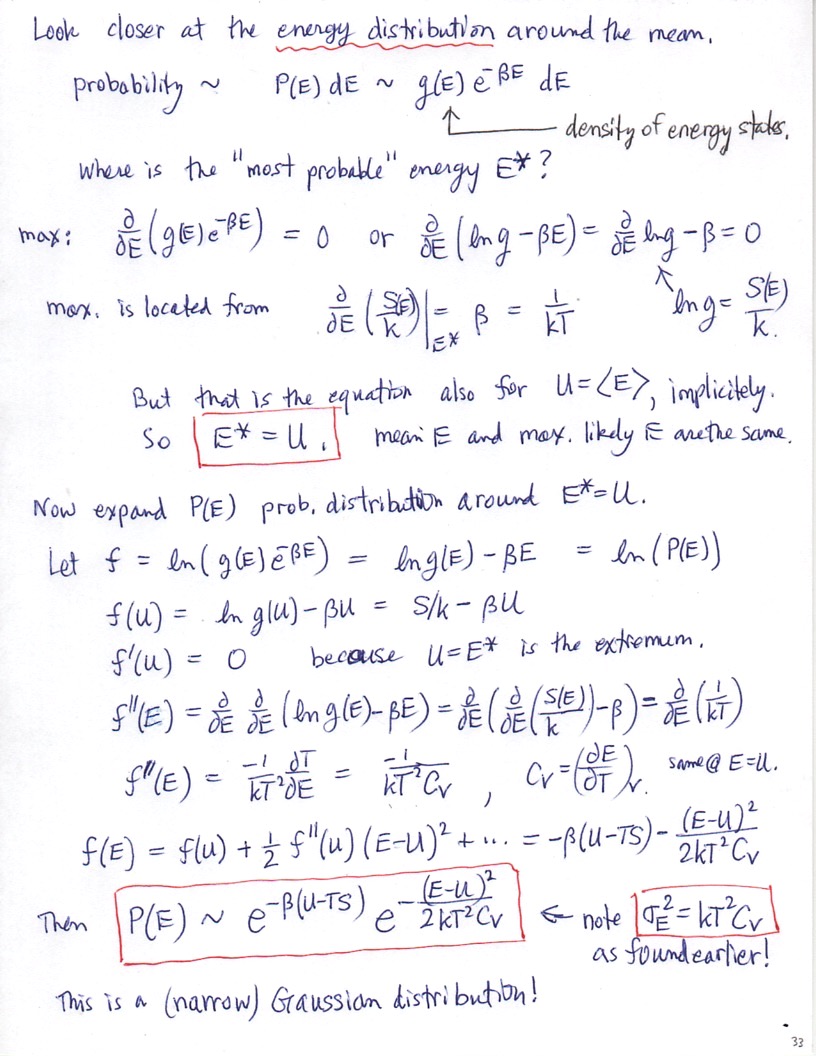 Look closer at the energy distribution around the mean.
probability ~ P(E) dE ~ g(E) e^{-βE} dE
density of energy states.
Where is the "most probable" energy E*?
max: ∂/∂E (g(E) e^{-βE}) = 0 or ∂/∂E (ln g - βE) = ∂/∂E ln g - β = 0
max. is located from ∂/∂E (S(E)/k)|_{E*} = β = 1/kT ln g = S(E)/k.
But that is the equation also for U = ⟨E⟩, implicitely.
So E* = U. mean E and max. likely E are the same.
Now expand P(E) prob. distribution around E* = U.
Let f = ln(g(E) e^{-βE}) = ln g(E) - βE = ln(P(E))
f(U) = ln g(U) - βU = S/k - βU
f'(U) = 0 because U = E* is the extremum.
f''(E) = ∂/∂E ∂/∂E (ln g(E) - βE) = ∂/∂E (∂/∂E (S(E)/k) - β) = ∂/∂E (1/kT)
f''(E) = -1/kT² ∂T/∂E = -1/kT²C_V , C_V = (∂E/∂T)_V. same @ E=U.
f(E) = f(U) + 1/2 f''(U) (E-U)² + ... = -β(U-TS) - (E-U)²/2kT²C_V
Then P(E) ~ e^{-β(U-TS)} e^{-(E-U)²/2kT²C_V} ← note σ_E² = kT²C_V
as found earlier!
This is a (narrow) Gaussian distribution!
33